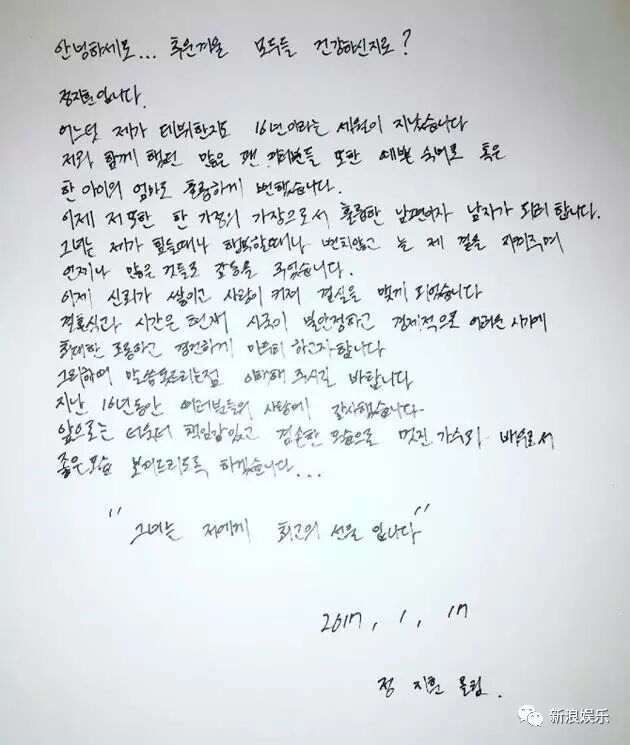 안녕하세요... 추운겨울 모두들 건강하신지요?
정지훈입니다.
어느덧 제가 데뷔한지도 16년이라는 세월이 지났습니다
저와 함께 했던 많은 팬 여러분들 또한 예쁜 숙녀로 혹은
한 아이의 엄마로 훌륭하게 변했습니다.
이제 저 또한 한 가정의 가장으로서 훌륭한 남편이자 남자가 되려 합니다.
그녀는 제가 힘들때나 행복할때나 변치않고 늘 제 곁을 지켜주며
언제나 많은 것들로 감동을 주었습니다.
이제 신뢰가 쌓이고 사랑이 커져 결실을 맺게 되었습니다
결혼식과 시간은 현재 시국이 불안정하고 경제적으로 어려운 시기에
최대한 조용하고 경건하게 마무리 하고자합니다
그리하여 말씀못드리는점 이해해 주시길 바랍니다
지난 16년동안 여러분들의 사랑에 감사했습니다.
앞으로는 더욱더 책임감있고 겸손한 모습으로 멋진 가수와 배우로서
좋은모습 보여드리도록 하겠습니다...
"그녀는 저에게 최고의 선물 입니다"
2017. 1. 17
정 지훈 올림.
新浪娱乐